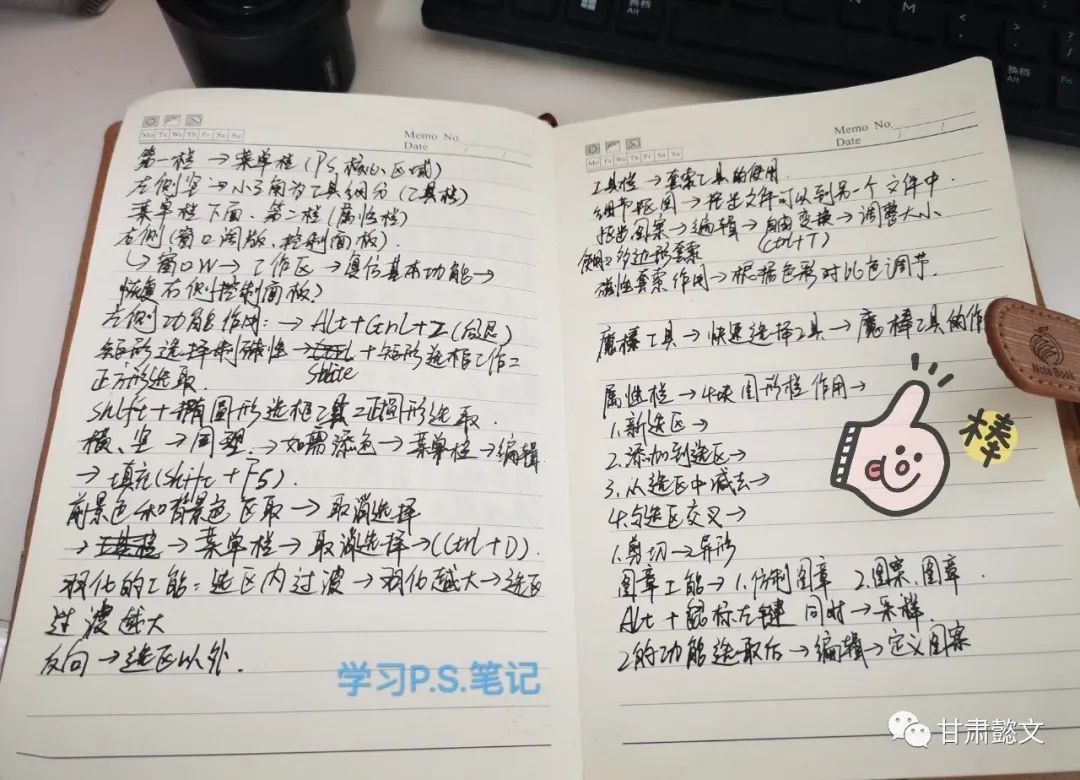 Memo No.
Date
Mo Tu We Th Fr Sa Su
第一栏→菜单栏(PS,核心区域)
左侧竖→小三角为工具细分(工具栏)
菜单栏下面、第二栏(属性栏)
左侧(窗口调版、控制面板).
↳窗口W→工作区→复位基本功能→
恢复右侧控制面板)
左侧功能作用:→Alt+Ctrl+Z(后退)
矩形选择 →+矩形选框工作=
Shite
正方形选取.
Shift+椭圆形选框工具=正圆形选取.
横、竖→同理.→如需添色→菜单栏→编辑
→填充(Shift+F5).
前景色和背景色区取→取消选择
→工具栏→菜单栏→取消选择→(Ctrl+D).
羽化的工能:选区内过渡→羽化越大→选区
过渡越大
反向→选区以外.
学习P.S.笔记
Memo No.
Date
Mo Tu We Th Fr Sa Su
工具栏→套索工具的使用.
细节抠图→抠出文件可以到另一个文件中.
抠出图案→编辑→自由变换→调整大小
(Ctrl+T)
使用:多边形套索
磁性套索作用→根据色彩对比色调节.
魔棒工具→快速选择工具→魔棒工具的作
属性栏→4块图形栏作用→
1.新选区→
2.添加到选区→
3.从选区中减去→
4.与选区交叉→
1.剪切→异形
图章工能→1.仿制图章 2.图案图章.
Alt+鼠标左键 同时→采样.
2的功能选取后→编辑→定义图案
棒
Note Book
换档
Alt
N
M
换档
Alt
Fn
甘肃懿文